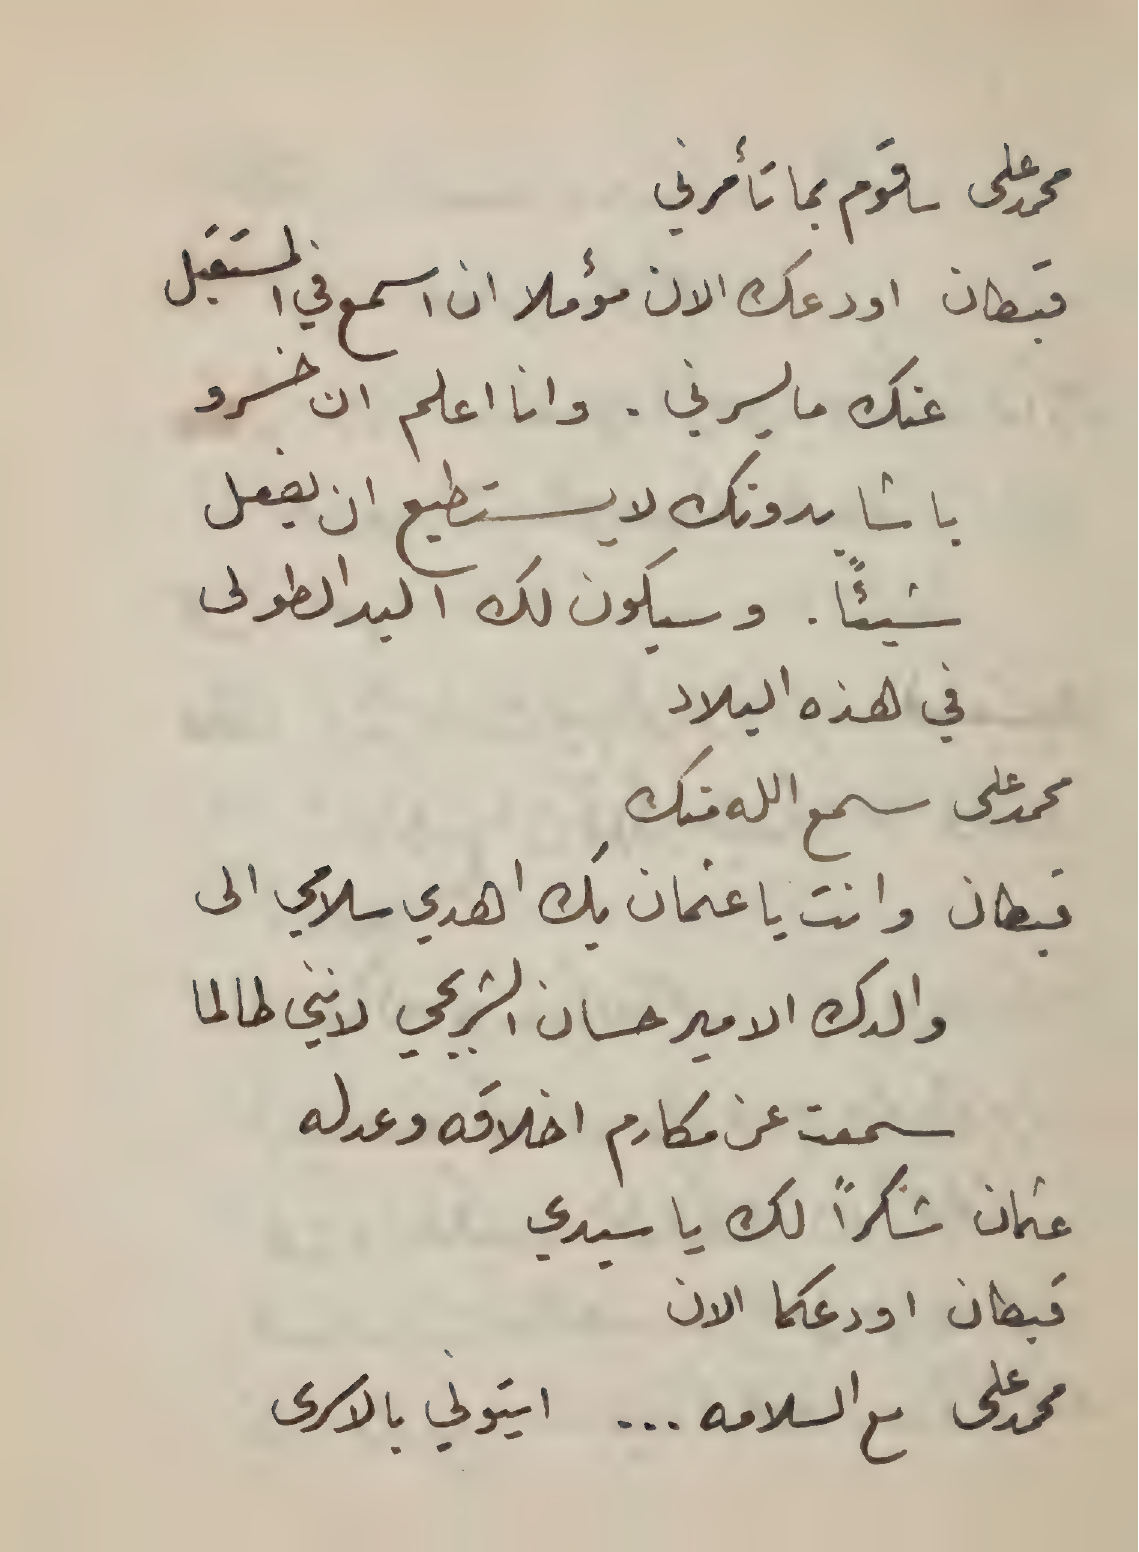 محمد علی ساقوم بما تأمرني
قبطان اودعك الان مؤملا ان اسمع في المستقبل
عنك ما يسرني . وانا اعلم ان خسرو
باشا بدونك لا يستطيع ان يفعل
شيئًا . وسيكون لك اليد الطولى
في هذه البلاد
محمد علی سمع الله منك
قبطان وانت يا عثمان بك اهدي سلامي الى
والدك الامير حسان الشربجي لانني طالما
سمعت عن مكارم اخلاقه وعدله
عثمان شكراً لك يا سيدي
قبطان اودعكما الان
محمد علی مع السلامه ... ايتوني بالاسرى